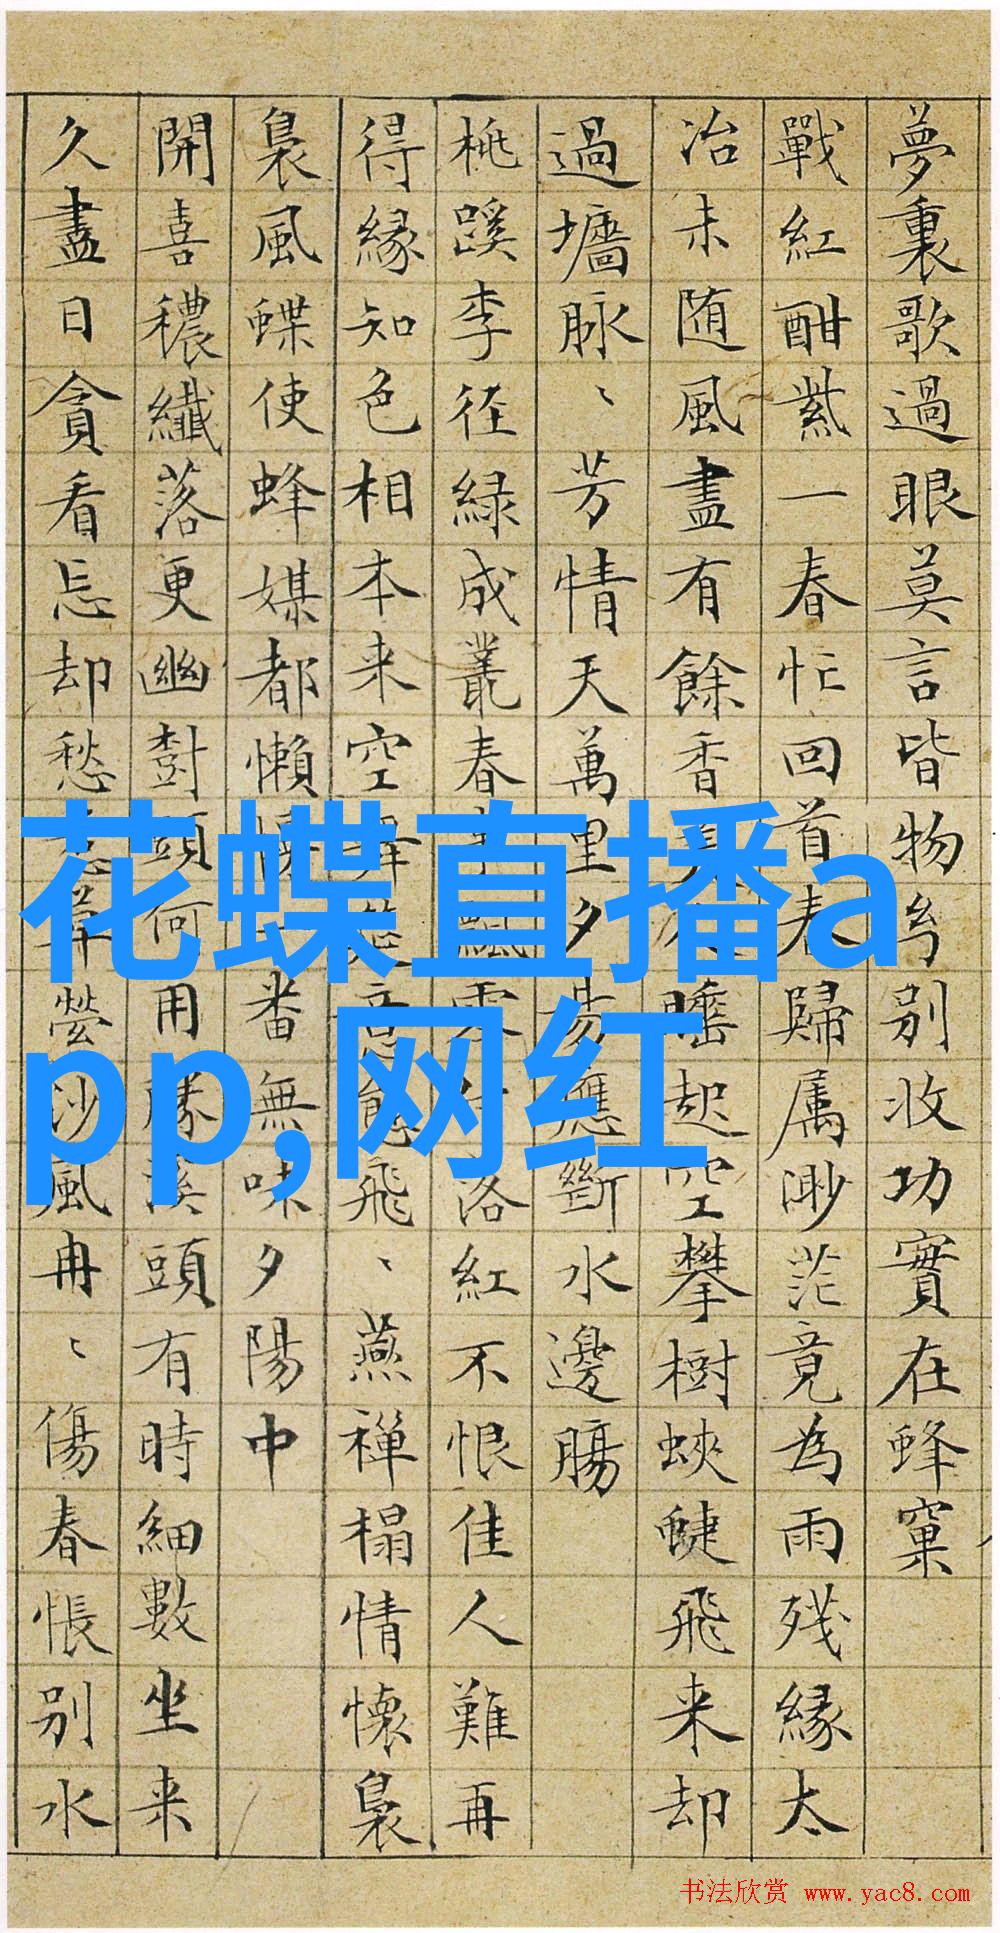 夢裏歌過眼莫言皆物紛別收功實在蜂窠
戰紅酣紫一春忙回首春歸屬渺茫竟為雨殘緣太
冶未随風盡有餘香美人睡起空攀樹蛺蝶飛来却
過墻脉、芳情天萬里夕陽應斷水邊腸
桃蹊李徑綠成叢春飄落紅不恨佳人難再
得緣知色相本来空舞意飛、燕禪榻情懷
裊風蝶使蜂媒都懶一番無味夕陽中
開喜穠纖落更幽對頭何用溪頭有時細數坐来
久盡日貪看忘却愁沙風冉、傷春悵別水
花蝶直播a
pp,网红
书法欣赏 www.yac8.com